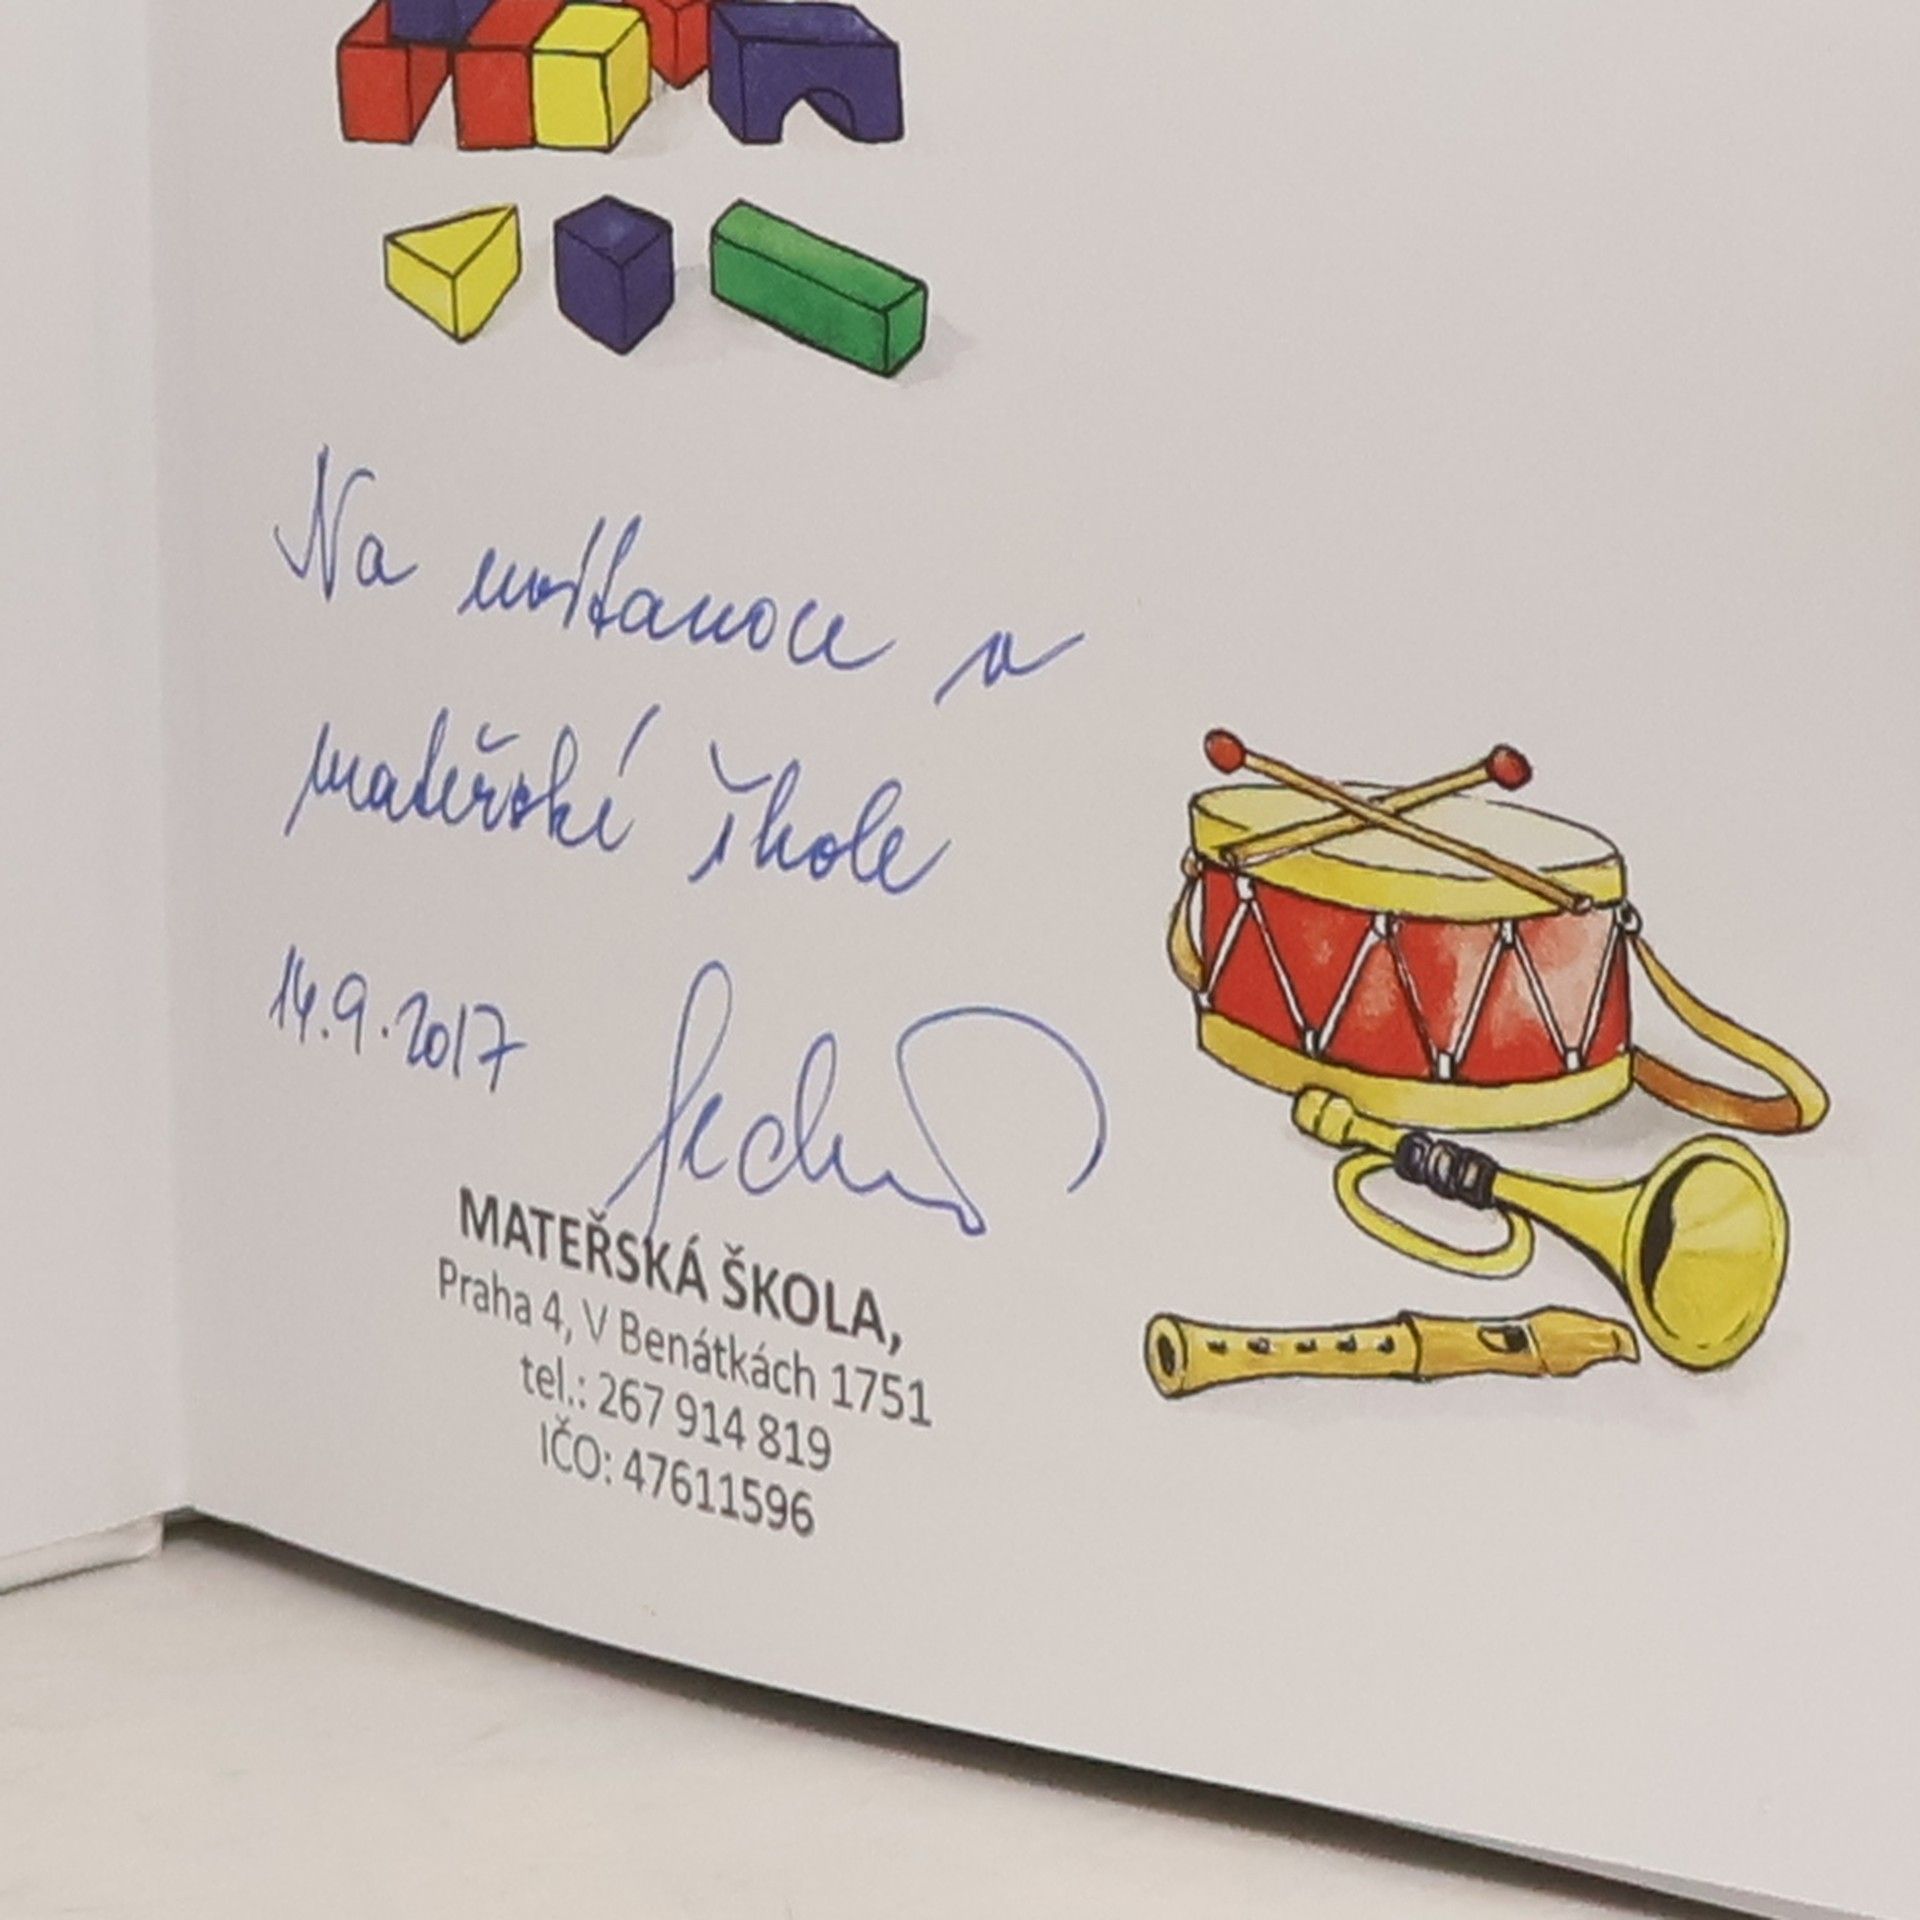 Na
v
mateřské škole
14.9.2017
MATEŘSKÁ ŠKOLA,
Praha 4, V Benátkách 1751
tel.: 267 914 819
IČO: 47611596